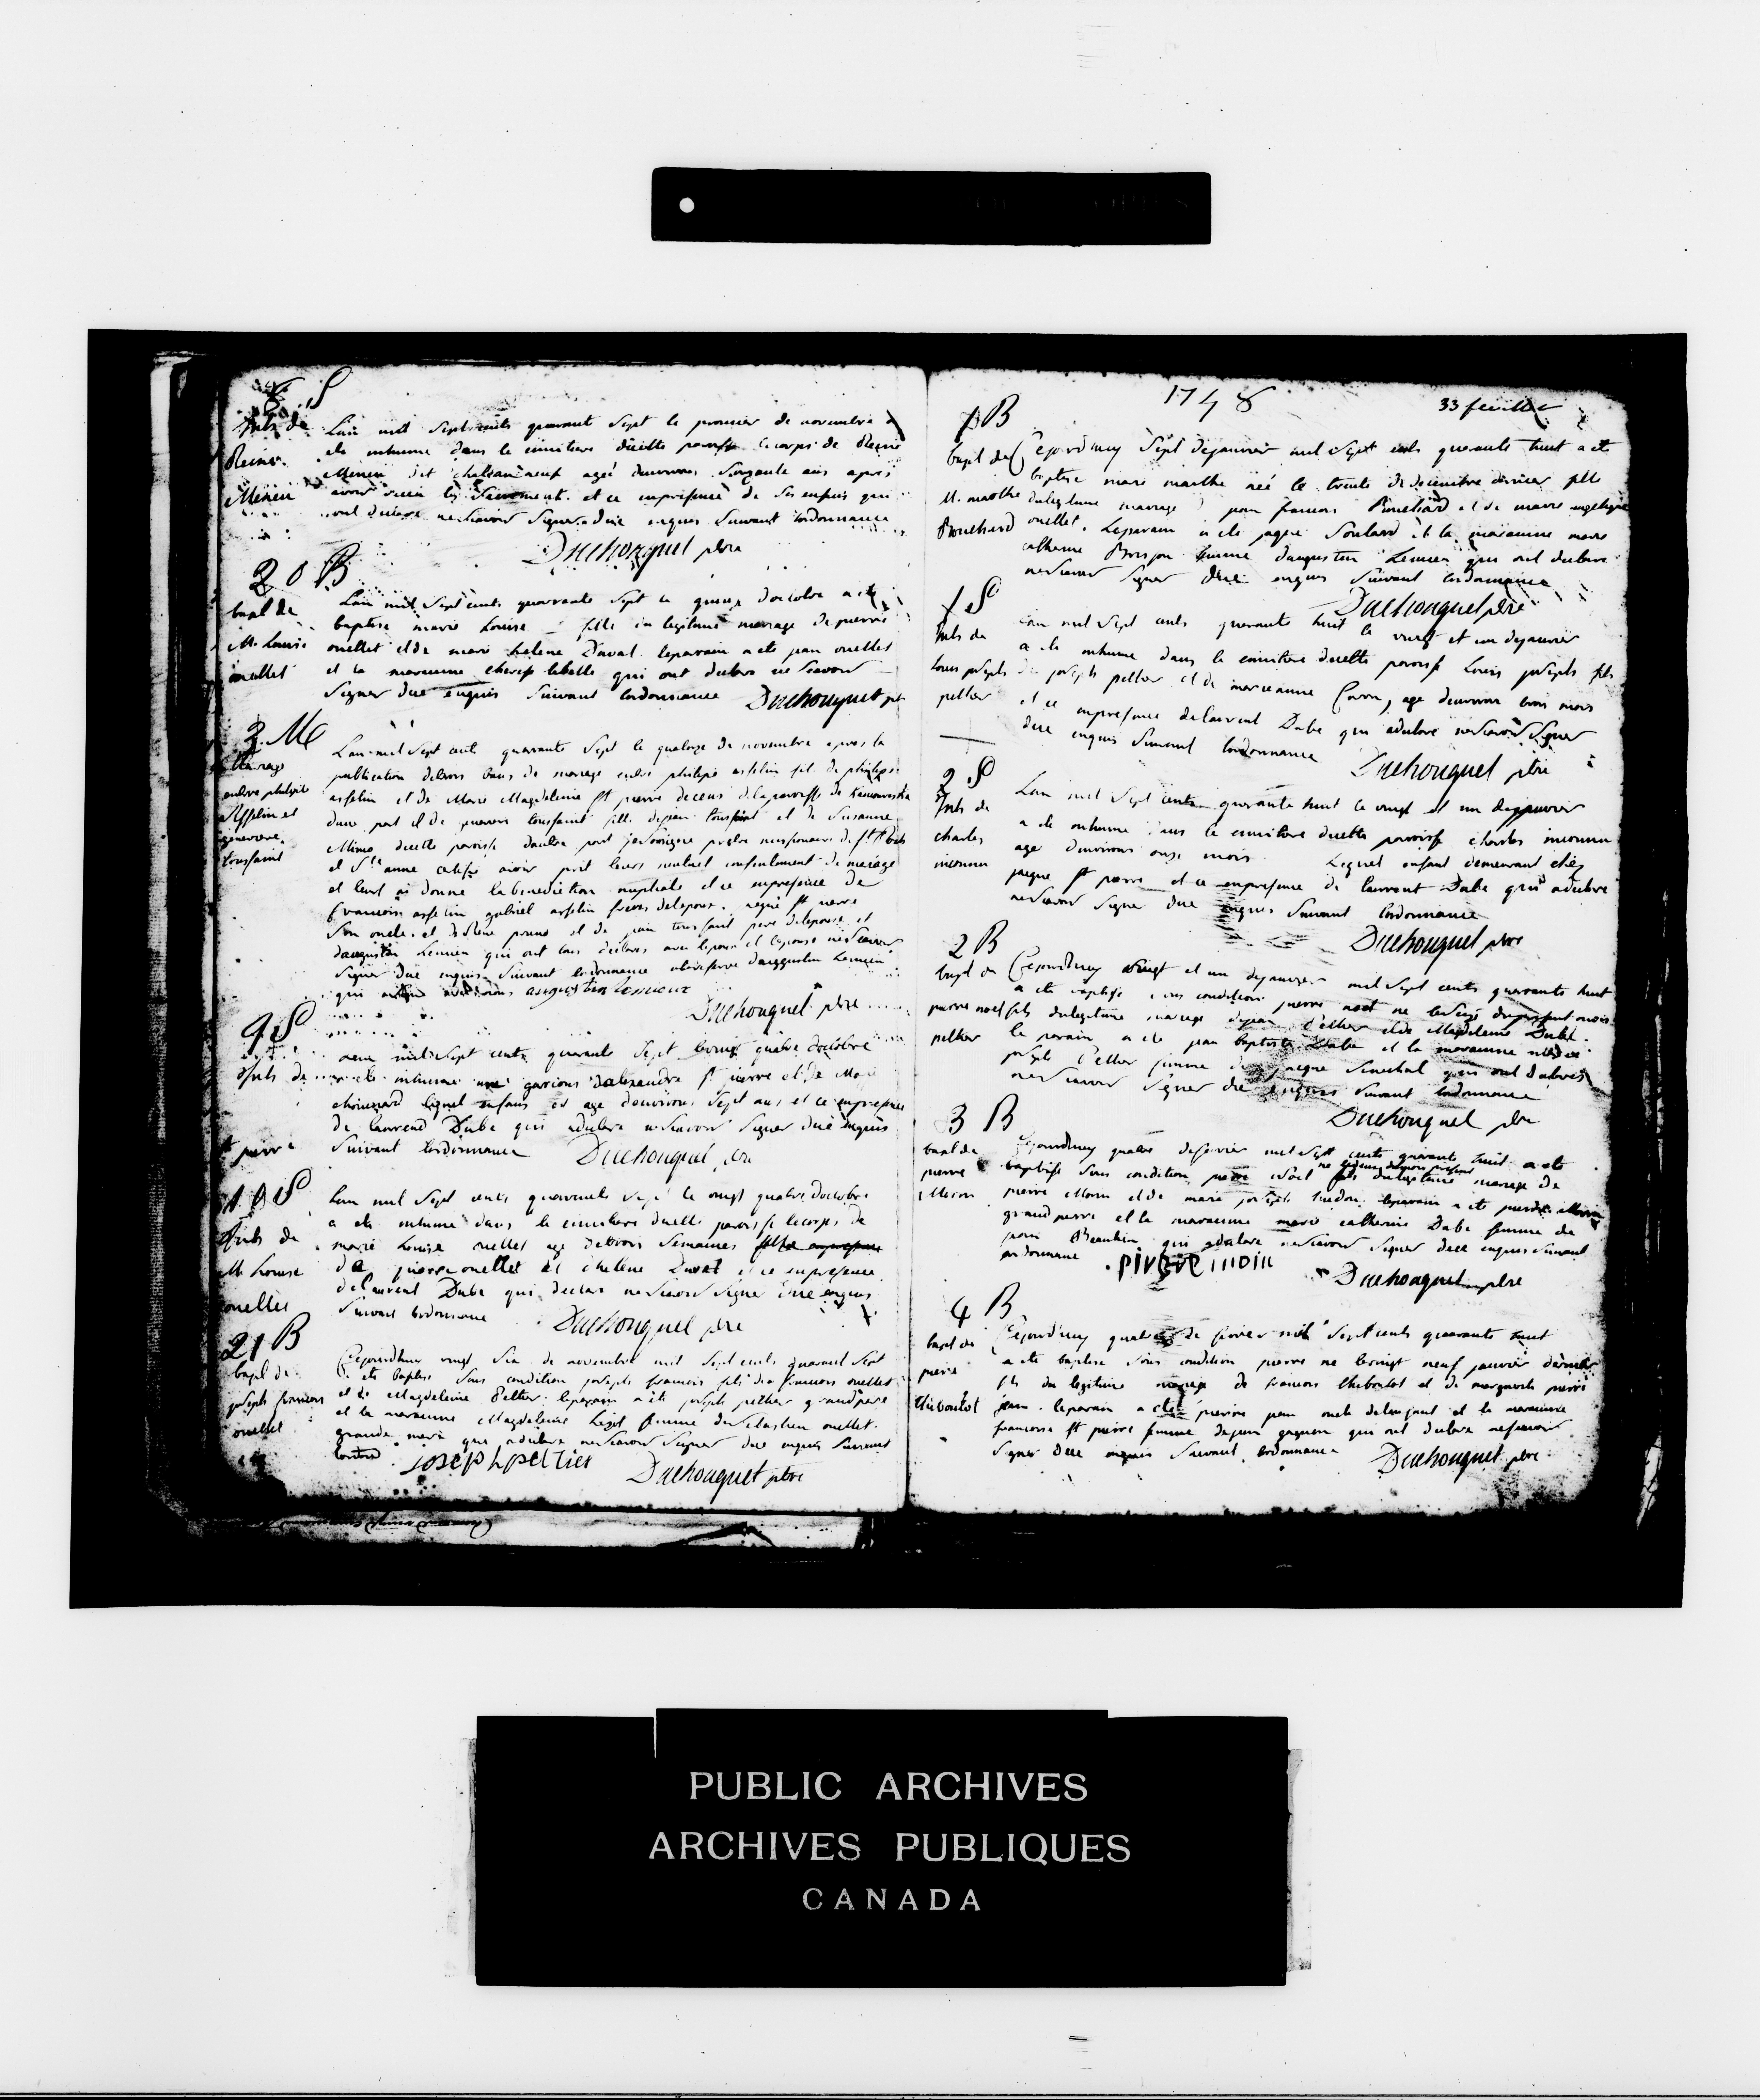 8 S
Lan mil Sept cents quarante Sept le premier de novembre a
ete inhume dans le cimitiere dicelle paroisse le corps de Reine
Menen dit chateauneuf agé denviron Soixante ans apres
avoir recu les Sacrement. et ce enpresence de Ses enfans qui
ont declare nesavoir Signer due enquis Suivant lordonnance
Reine
Meneu
Duchouquet ptre
20 B
bapt de
M. Louise
ouellet
Lan mil Sept cents quarante Sept le quinze doctobre a ete
baptise marie Louise fille du legitime mariage de pierre
ouellet et de marie helene Duval. leparain a ete jean ouellet
et la maraine therese lebelle qui ont declare ne Savoir
Signer due enquis Suivant lordonnance Duchouquet ptr
3 M
Mariage
entre philipe
Asselin et
genevieve
toussaint
Lan mil Sept cents quarante Sept le quatorze de novembre apres la
publication detrois bans de mariage entre philipe asselin fils de philipe
asselin et de Marie Magdeleine St pierre deceus de la paroisse de Kamouraska
dune part et de genevieve toussaint fille dejean toussaint et de Susanne
Mimo dicelle paroisse dautre part
et Ste anne
et leur ai donne la benediction nuptiale et ce enpresence de
francois asselin gabriel asselin freres delepoux. St pierre
Son oncle. et de et de jean toussaint pere delepouse et
daugustin Lemieu qui ont tous declares avec lepoux et lepouse nesavoir
Signer due enquis Suivant lordonnance alareserve daugustin Lemieu
qui augustin lemieux
Duchouquet ptre
9 S
mil Sept cents quarante Sept le vingt quatre doctobre
inhume un garcons dalexandre St pierre et de Marie
chouinard lequel enfans est age denvirons Sept ans et ce enpresence
de laurend Dube qui adeclare nesavoir Signer due enquis
Suivant lordonnance Duchouquet ptre
St pierre
10 S
Inh de
M. Louise
ouellet
Lan mil Sept cents quarante Sept le vingt quatre doctobre
a ete inhume dans le cimitiere dicelle paroisse le corps de
marie Louise ouellet age detrois Semaines
de pierre ouellet et dhelene Duval et ce enpresence
delaurent Dube qui declare nesavoir Signe due enquis
Suivant lordonnance Duchouquet ptre
21 B
bapt de
joseph francois
ouellet
Cejourdhuy vingt Six de novembre mil Sept cents quarante Sept
a ete baptise Sous condition joseph francois fils de francois ouellet
et de Magdeleine Peltier. leparain a ete joseph peltier grandpere
et la maraine Magdeleine Lizot femme de Sebastien ouellet
grande mere qui adeclare nesavoir Signer due enquis Suivant
lordon josephpelTier
Duchouquet ptre
1748
33 feuillet
1 B
bapt de
M. marthe
Bouchard
Cejourdhuy Sept dejanvier mil Sept cents quarante huit a ete
baptise marie marthe née le trente dedecembre dernier fille
dulegitime mariage de jean francois Bouchard et de marie angelique
ouellet. Leparain a ete jaques Soulard et la maraine marie
catherine Brisson femme daugustin Lemieu qui ont declare
nesavoir Signer due enquis Suivant lordonnance
Duchouquet ptre
1 S
Inh de
Louis joseph
peltier
Lan mil Sept cents quarante huit le vingt et un dejanvier
a ete inhume dans le cimitiere dicelle paroisse Louis joseph fils
de joseph peltier et de marieanne Caron, age denviron trois mois
et ce enpresence delaurent Dube qui adeclare nesavoir Signer
due enquis Suivant lordonnance Duchouquet ptre
2 S
Inh de
charles
inconnu
Lan mil Sept cents quarante huit le vingt et un dejanvier
a ete inhume dans le cimitiere dicelle paroisse charles inconnu
age denvirons onze mois. Lequel enfant demeurant chéz
jaque St pierre et ce enpresence de laurent Dube qui adeclare
nesavoir Signe due enquis Suivant lordonnance
Duchouquet ptre
2 B
bapt de
pierre noel
peltier
Cejourdhuy vingt et un dejanvier mil Sept cents quarante huit
a ete baptise Sous condition pierre noel ne le Seize dupresent mois
fils dulegitime mariage dejean Peltier et de Magdeleine Dube.
le parain a ete jean baptiste Dube et la maraine
joseph Peltier femme de jaque Senechal qui ont declare
nesavoir Signer due enquis Suivant lordonnance
Duchouquet ptre
3 B
bapt de
pierre
Morin
Cejourdhuy quatre defevrier mil Sept cents quarante huit a ete
baptise Sous condition pierre noel fils dulegitime mariage de
pierre Morin et de marie joseph leparain a ete pierre Morin
grand pere et la maraine marie catherine Dube femme de
jean Beaulieu qui adeclare nesavoir Signer due enquis Suivant
ordonnance piERRE moin
Duchouquet ptre
4 B
bapt de
pierre
thiboutot
Cejourdhuy quatre de fevrier mil Sept cents quarante huit
a ete baptise Sous condition pierre ne levingt neuf janvier dernier
fils du legitime mariage de francois thiboutot et de marguerite pierre
jean. leparain a ete pierre jean oncle delenfant et la maraine
francoise St pierre femme dejean gagnon qui ont declare nesavoir
Signer due enquis Suivant lordonnance Duchouquet ptre
PUBLIC ARCHIVES
ARCHIVES PUBLIQUES
CANADA